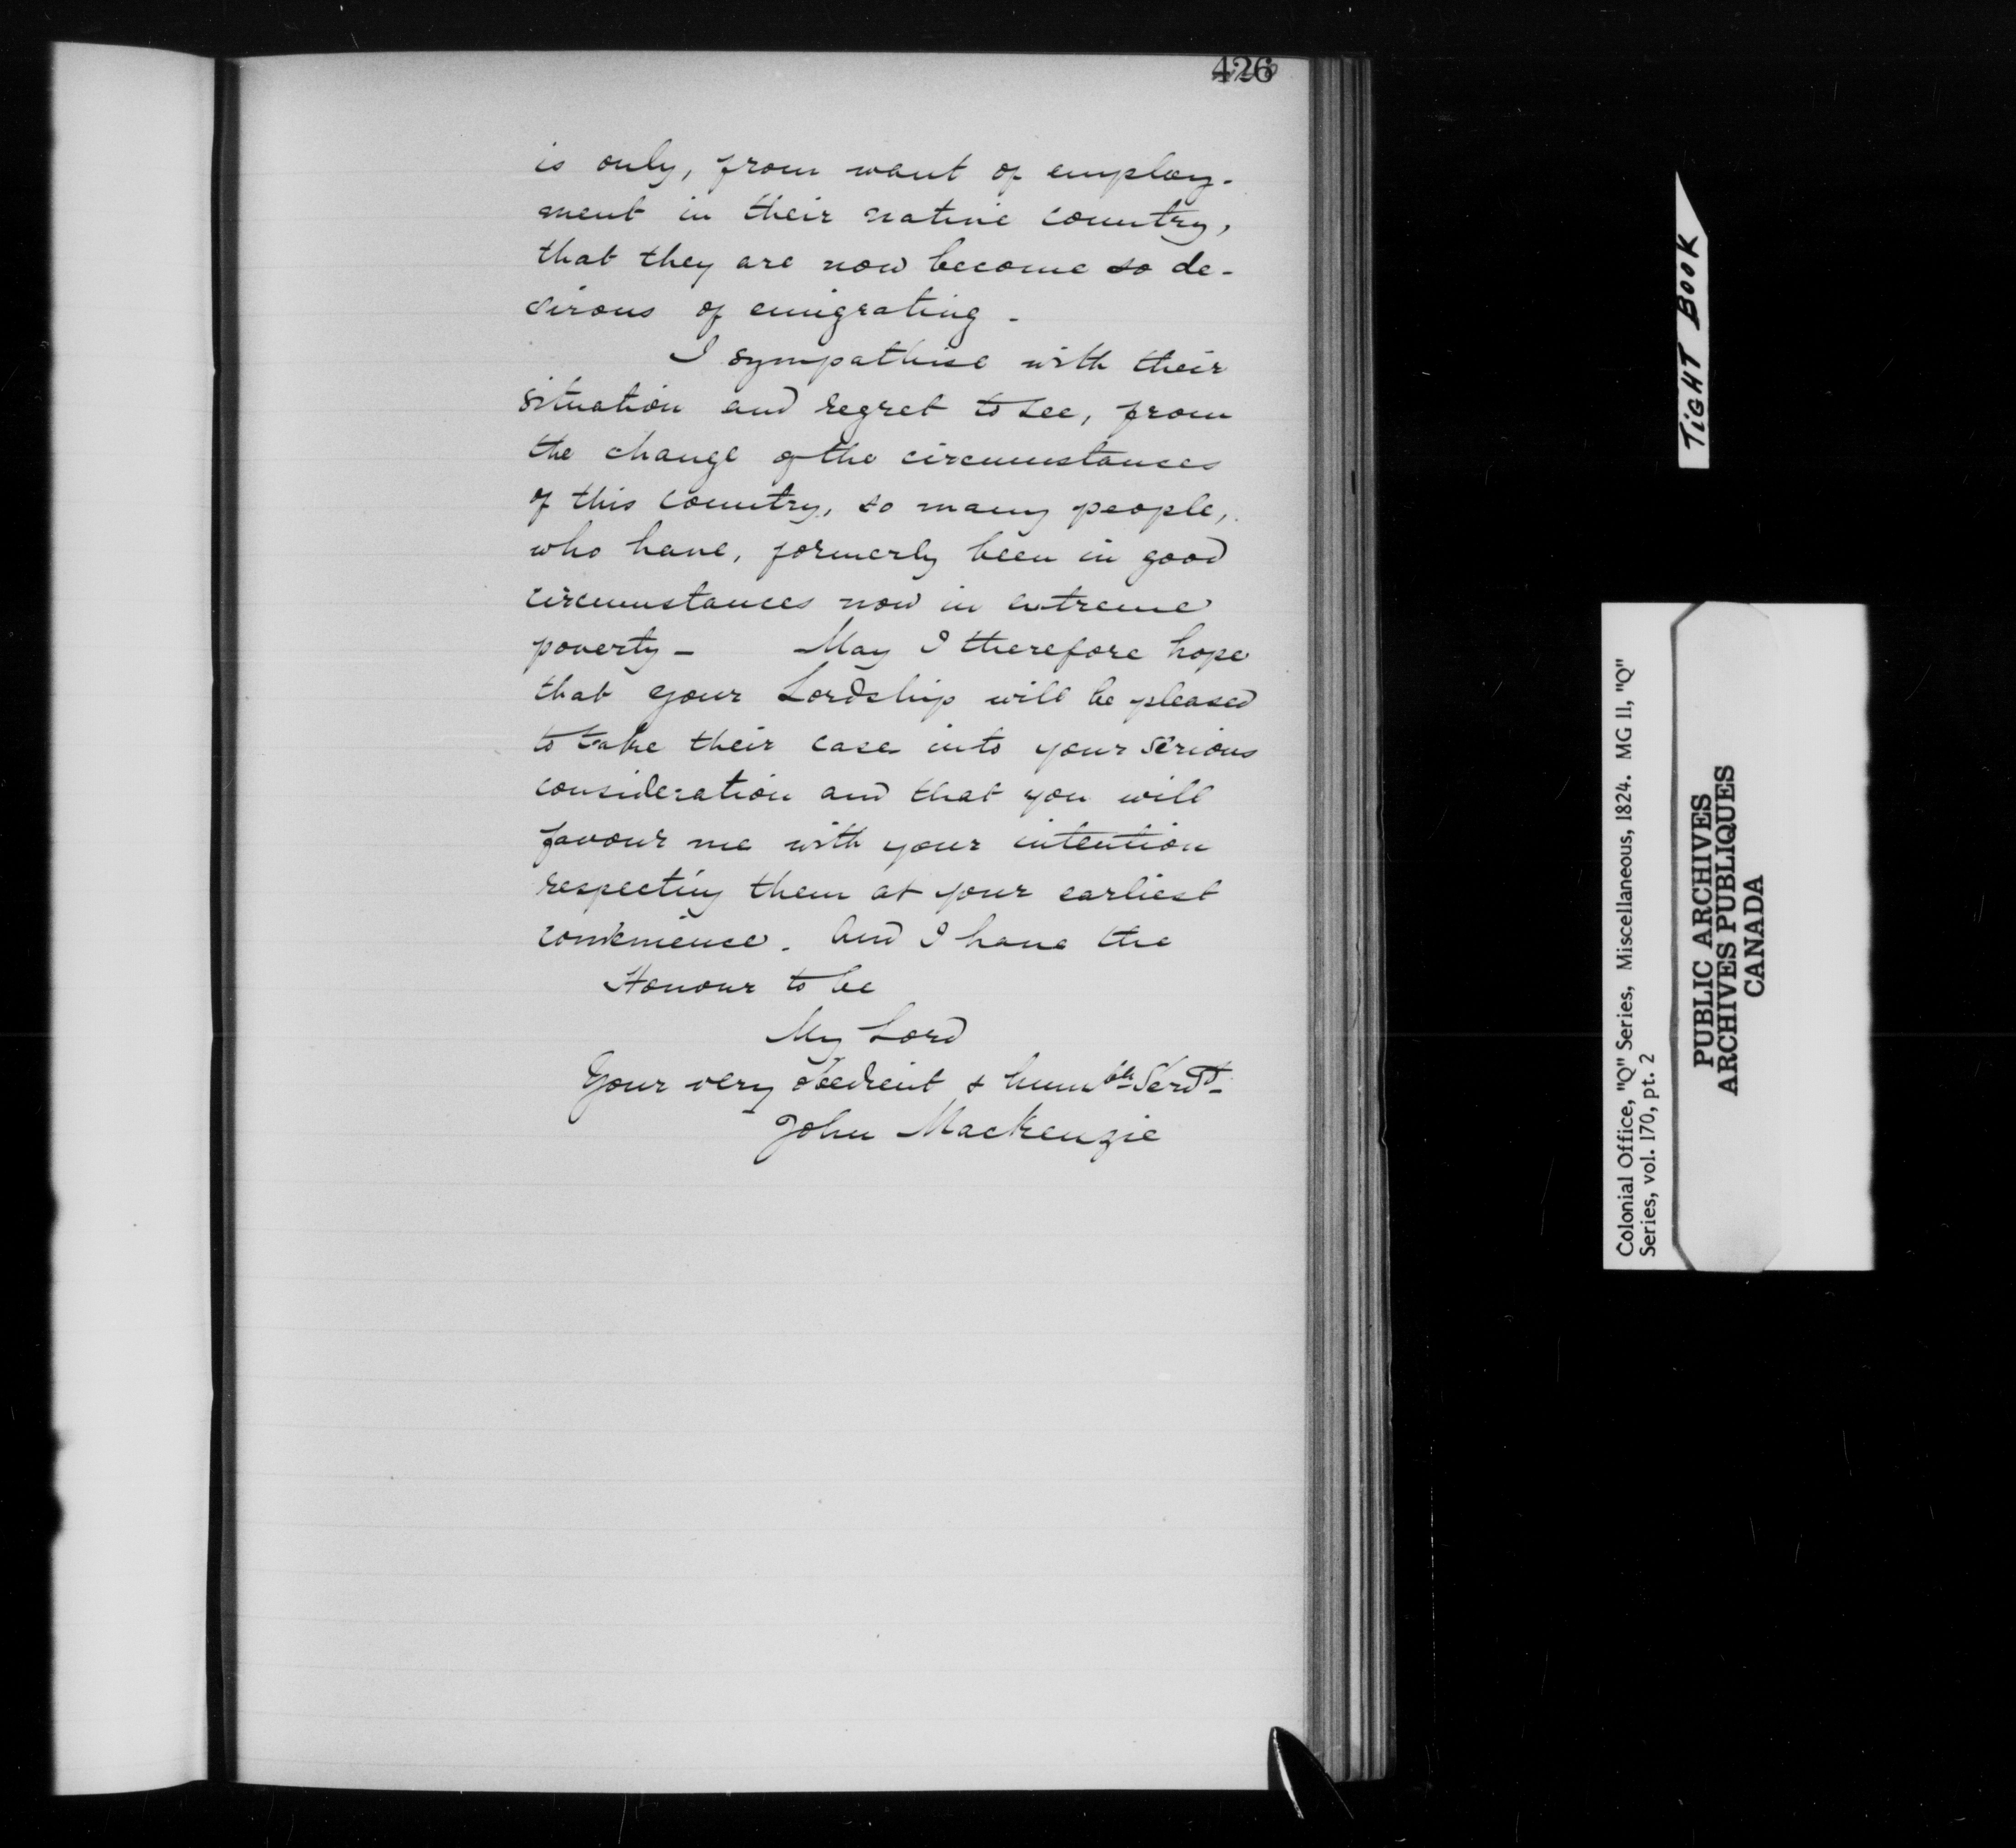 426
is only, from want of employ-
ment in their native country,
that they are now become so de-
sirous of emigrating -
I sympathise with their
situation and regret to see, from
the change of the circumstances
of this country, so many people,
who have, formerly been in good
circumstances now in extreme
poverty - May I therefore hope
that your Lordship will be pleased
to take their case into your serious
consideration and that you will
favour me with your intention
respecting them at your earliest
convenience. And I have the
Honour to be
My Lord
Your very obedient & humble Servt
John Mackenzie
TIGHT BOOK
Colonial Office, "Q" Series, Miscellaneous, 1824. MG 11, "Q"
Series, vol. 170, pt. 2
PUBLIC ARCHIVES
ARCHIVES PUBLIQUES
CANADA